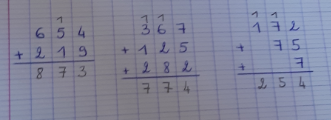 1
6 5 4
+ 2 1 9
8 7 3
1 1
3 6 7
+ 1 2 5
+ 2 8 2
7 7 4
1 1
1 7 2
+ 7 5
+ 7
2 5 4